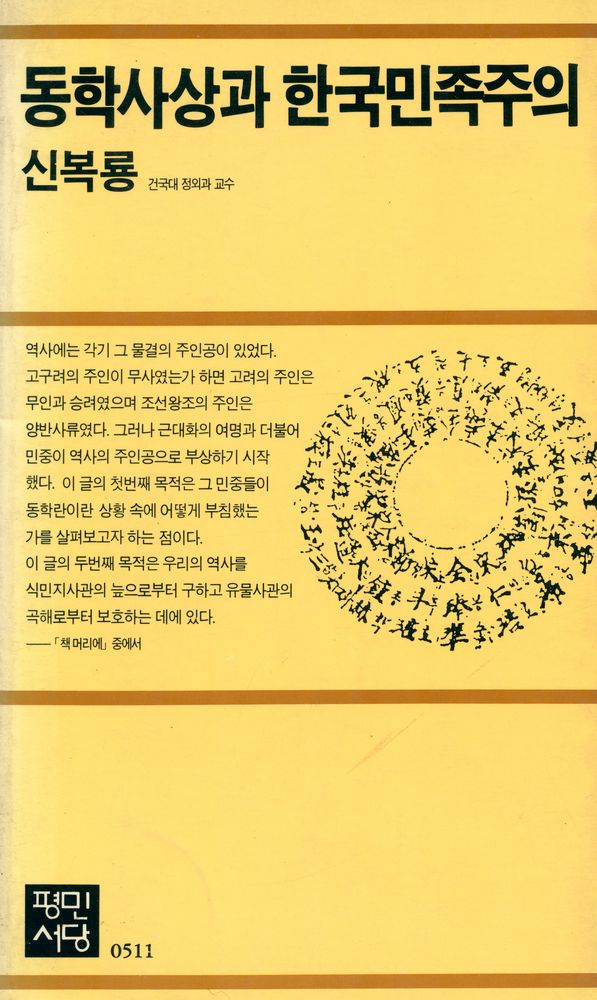 동학사상과 한국민족주의
신복룡 건국대 정외과 교수
역사에는 각기 그 물결의 주인공이 있었다.
고구려의 주인이 무사였는가 하면 고려의 주인은
무인과 승려였으며 조선왕조의 주인은
양반사류였다. 그러나 근대화의 여명과 더불어
민중이 역사의 주인공으로 부상하기 시작
했다. 이 글의 첫번째 목적은 그 민중들이
동학란이란 상황 속에 어떻게 부침했는
가를 살펴보고자 하는 점이다.
이 글의 두번째 목적은 우리의 역사를
식민지사관의 늪으로부터 구하고 유물사관의
곡해로부터 보호하는 데에 있다.
——「책머리에」중에서
평민
서당
0511